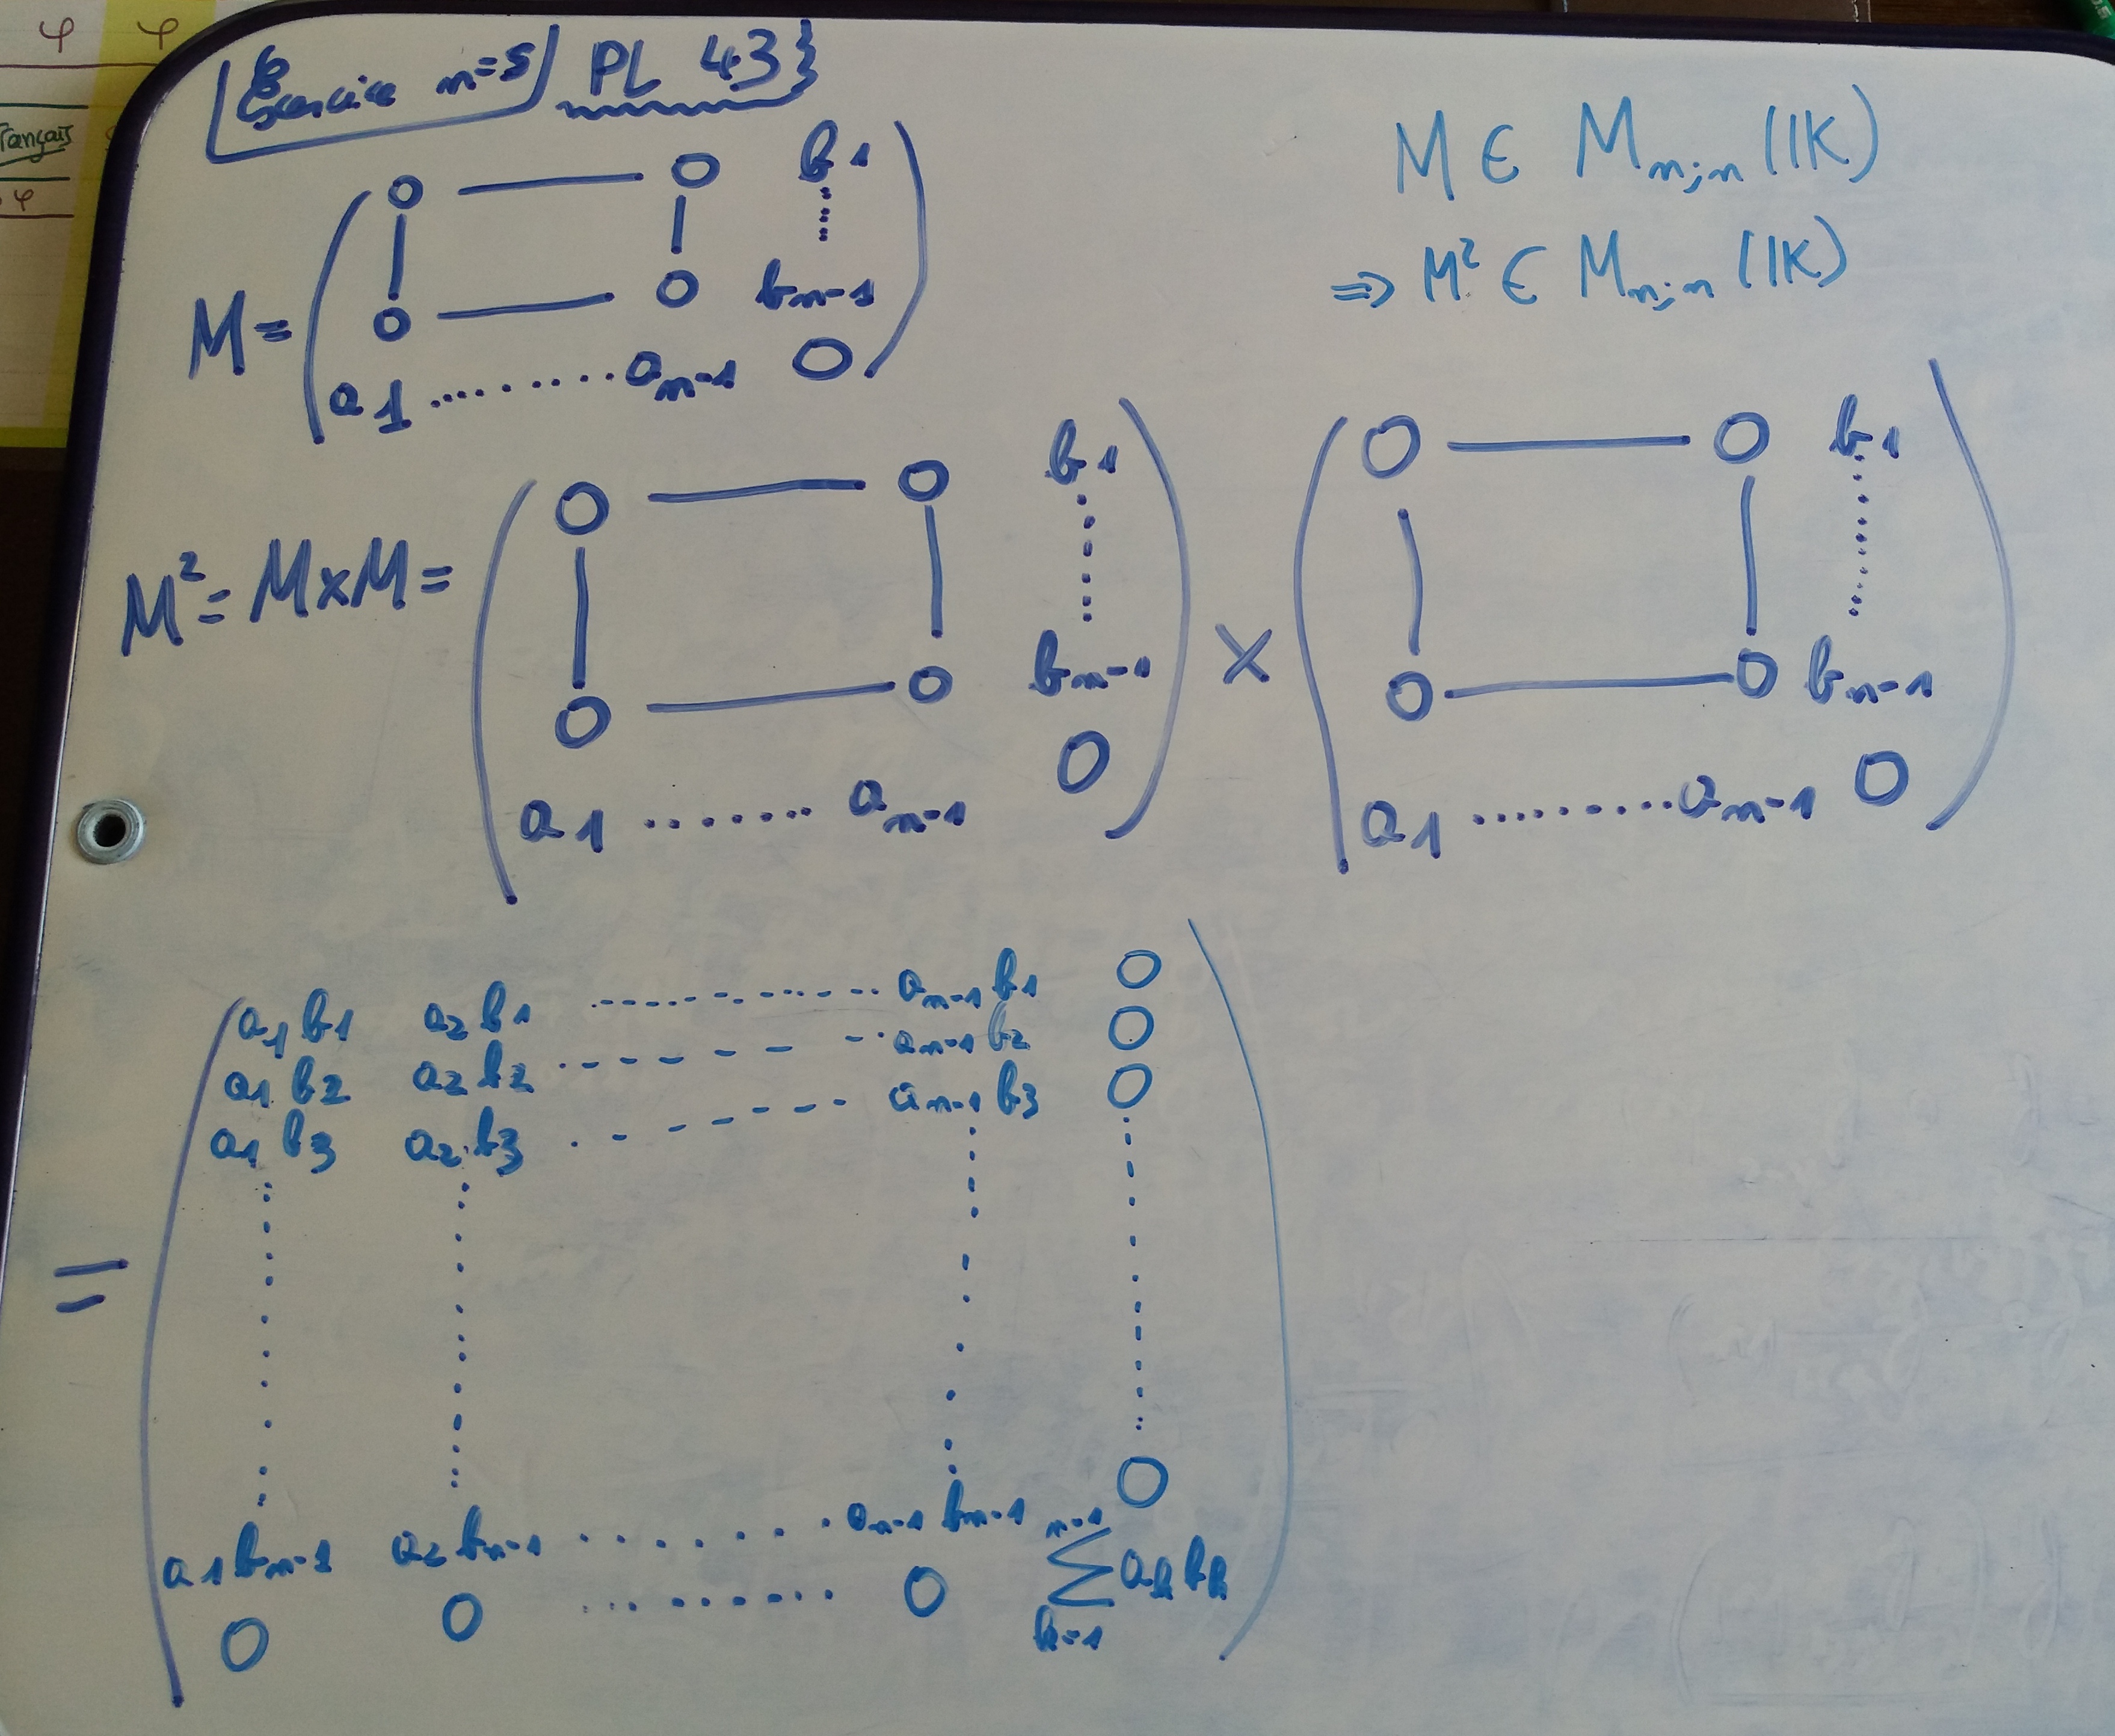 φ φ
Français
φ
Exercice n=5 PL 43}
M ∈ Mn;n (IK)
⇒ M² ∈ Mn;n (IK)
M = ( 0 — 0 b1
| | ⋮
0 — 0 bn-1
a1 ......... an-1 0 )
M² = M×M = ( 0 — 0 b1
| | ⋮
0 — 0 bn-1
a1 ........ an-1 0 ) × ( 0 — 0 b1
| | ⋮
0 — 0 bn-1
a1 ......... an-1 0 )
= ( a1 b1 a2 b1 ......... an-1 b1 0
a1 b2 a2 b2 ......... an-1 b2 0
a1 b3 a2 b3 ......... an-1 b3 0
⋮ ⋮ ⋮ ⋮
0
a1 bn-1 a2 bn-1 ......... an-1 bn-1
0 0 ......... 0 n-1 ∑ k=1 ak bk )